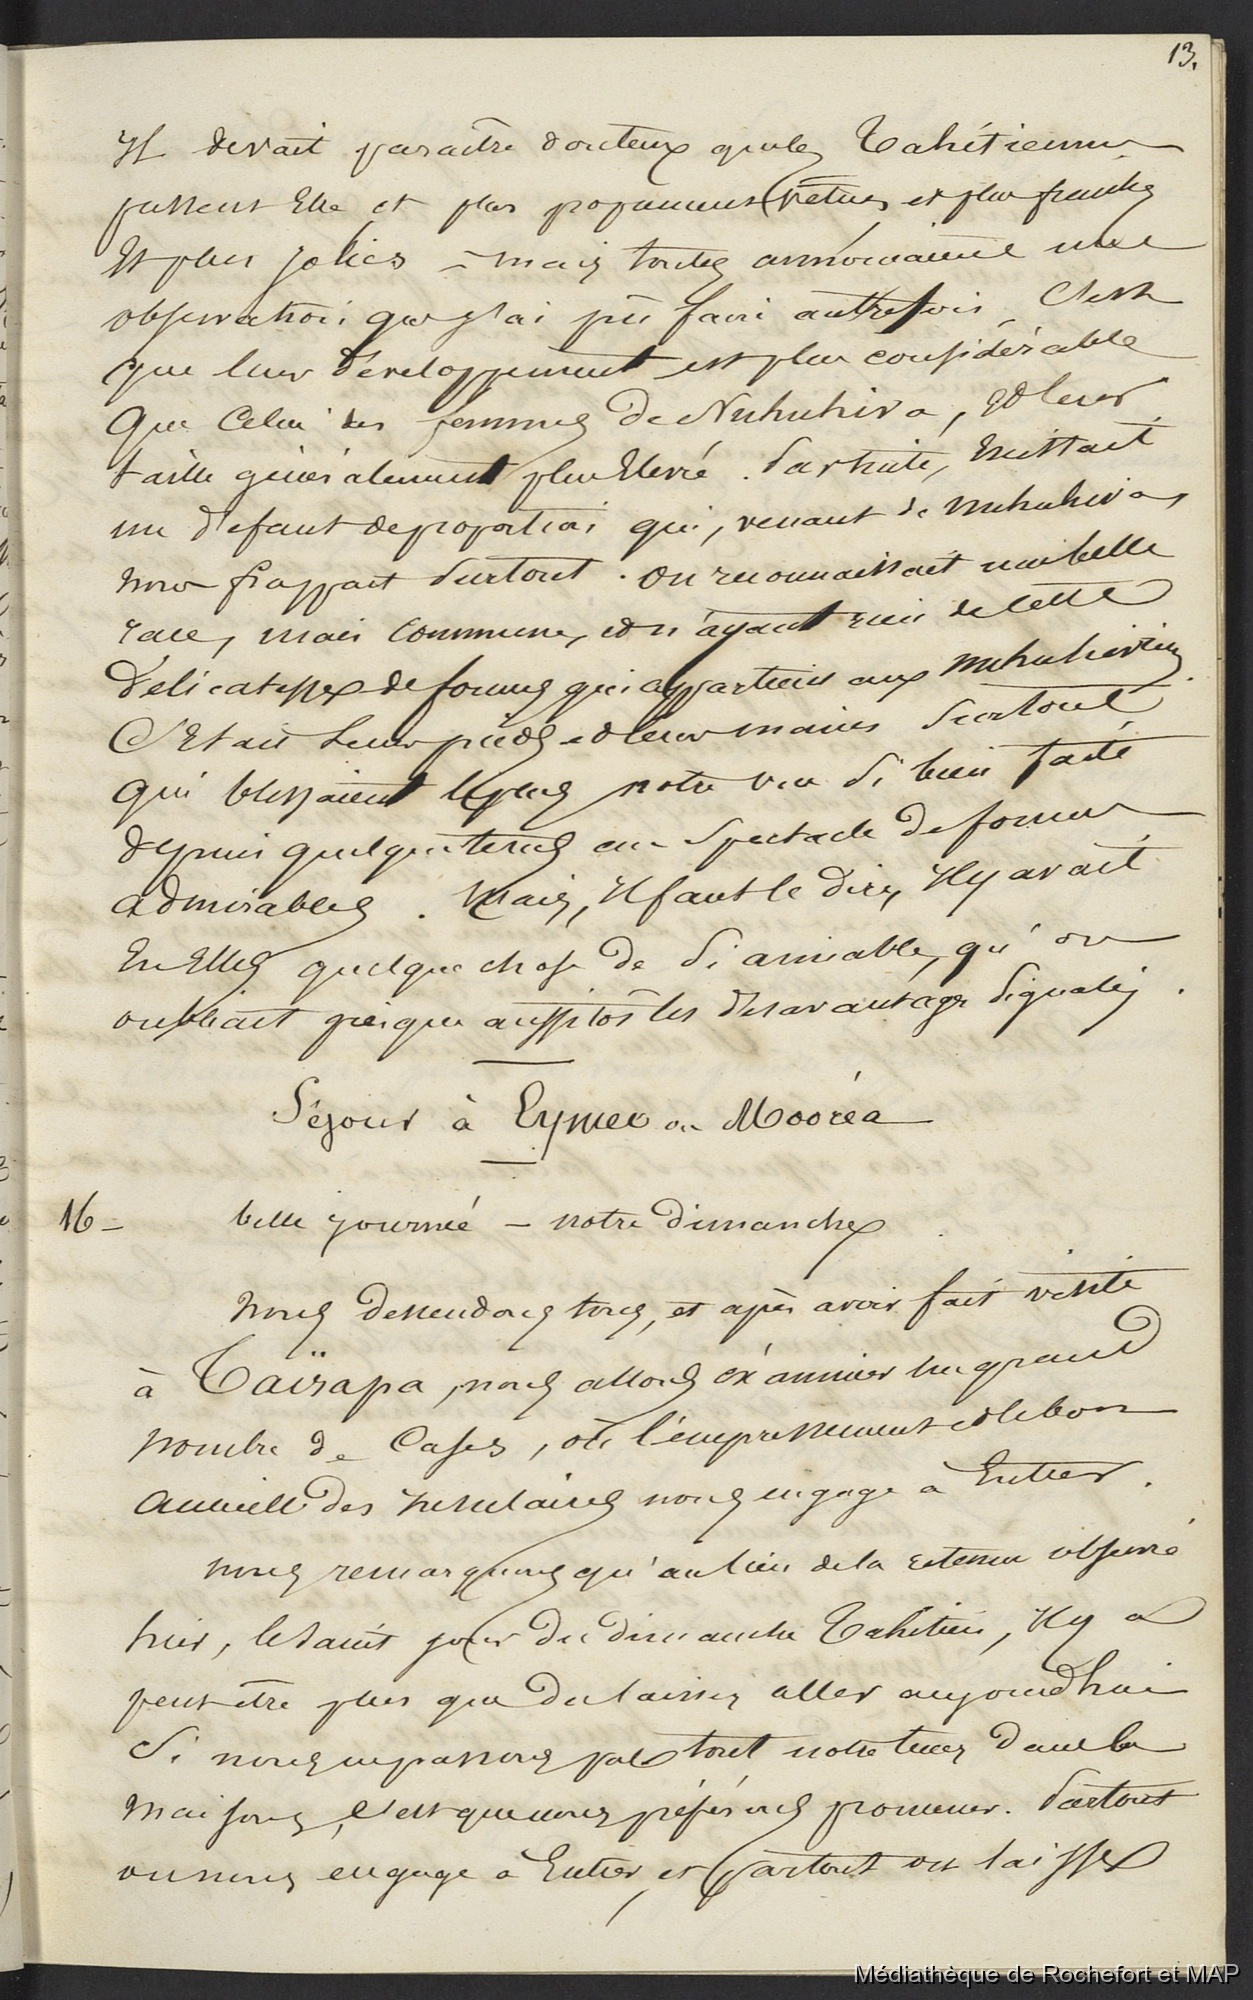 13.
Il devait paraître douteux que les Tahétiennes
fussent Elle et plus proprement vêtues et plus franches
Et plus jolies – mais toutes annonçaient une
observation que j'ai pû faire autrefois C'est
que leur dévelopement est plus considérable
Que Celui des femmes De Nuhuhiva, Et leur
taille généralement plus Elevé. Par suite, Existait
un défaut de proportion qui, venant de Nuhuhiva,
nous frappait Surtout. On reconnaissait une belle
race, mais Commune, et n'ayant rien de Cette
Délicatesse de formes qui appartient aux Nuhuhiviens.
C'Etait Leurs pieds et leurs mains Surtout
qui blessaient le plus notre vue Si bien faite
depuis quelque tems au Spectacle De formes
admirables. Mais, Il faut le Dire, Il y avait
En Elles quelque chose De Si aimable, qu'on
oubliait presque aussitôt les Desavantages Signalés.
Séjour à Eymeo ou Mooréa
16 – belle journée – notre Dimanche
Nous descendons tous, et après avoir fait visite
à Taïrapa, nous allons éxaminer Un grand
nombre de Cases, où l'empressement et le bon
accueil Des Insulaires nous engage à Entrer.
Nous remarquons qu'au lieu de la retenue observé
hier, le Saint jour Du Dimanche Tahitien, Il y a
peut être plus que Du laisser aller aujourd'hui
Si nous ne passons pas tout notre tems Dans les
Maisons, C'est que nous préférons promener. Partout
on nous engage à Entrer, et partout on laisse
Médiathèque de Rochefort et MAP